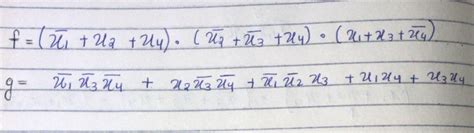 f = (x̅₁ + x₂ + x₄) · (x̅₂ + x̅₃ + x₄) · (x₁ + x₃ + x̅₄)
g = x̅₁ x̅₃ x̅₄ + x₂ x̅₃ x̅₄ + x̅₁ x̅₂ x₃ + x₁ x₄ + x₃ x₄